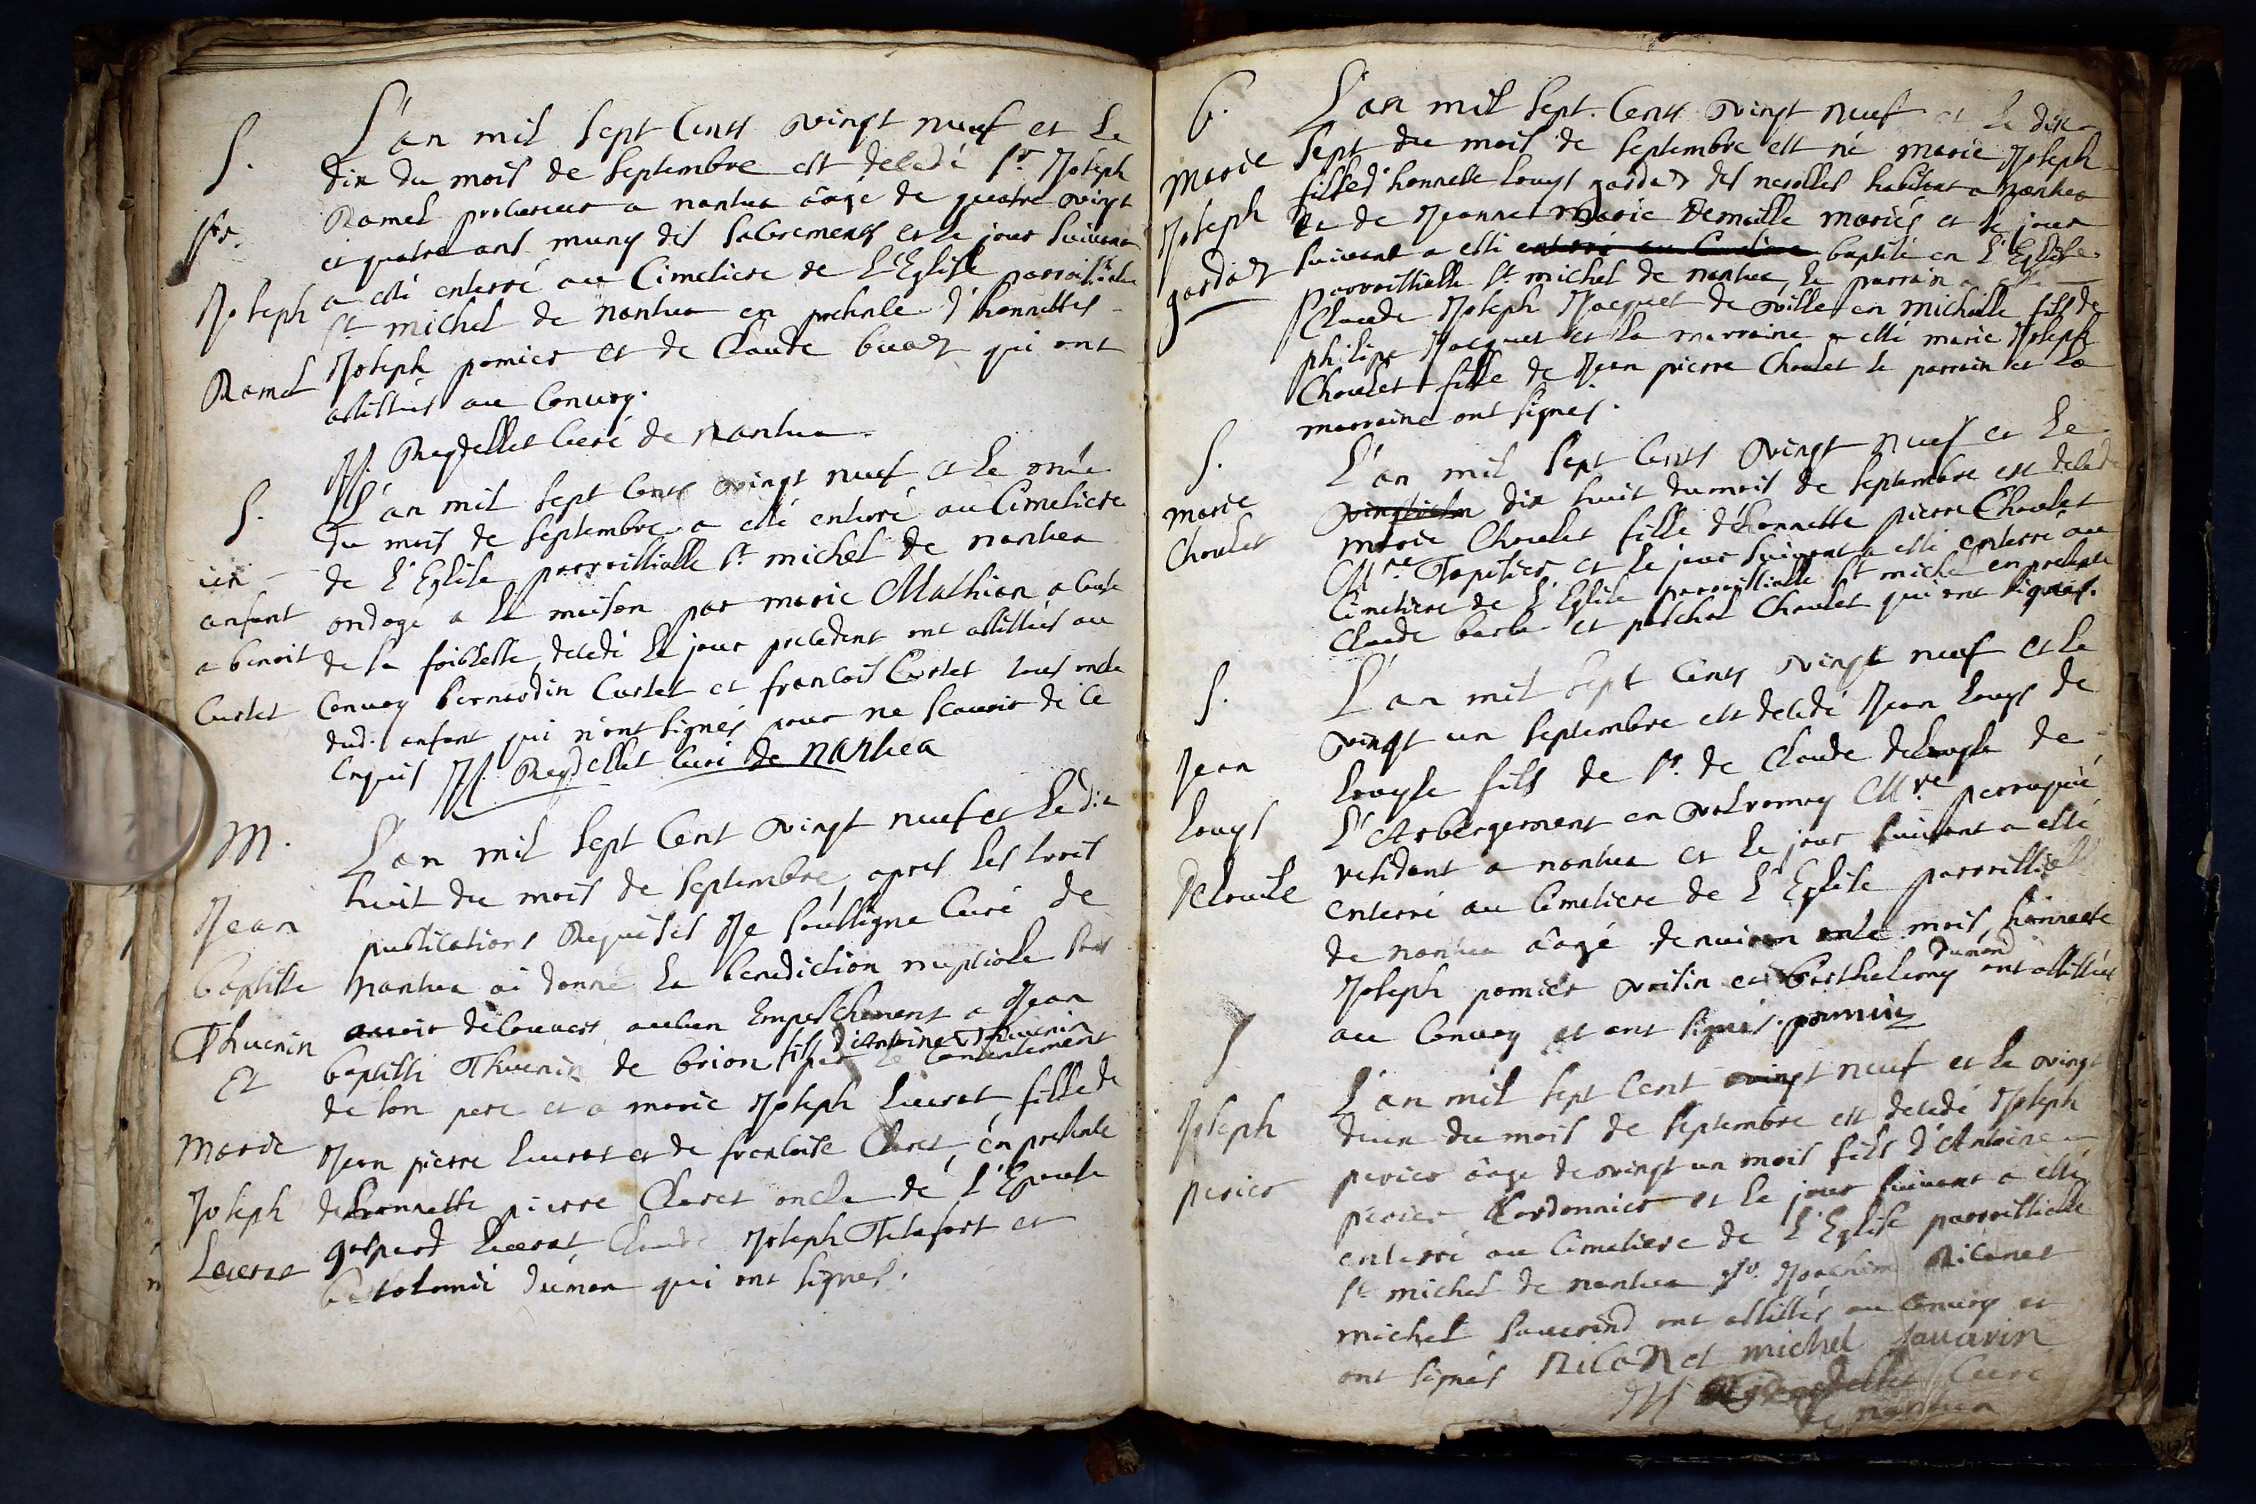 S.
Sr.
Joseph
Ramel
L'an mil sept cents vingt neuf et le
dix du mois de septembre est decedé Sr. Joseph
Ramel procureur a nantua aâgé de quatre vingt
et quatre ans muny des sacrements et le jour suivant
a esté enterré au Cimetiere de L'Eglise parroissiale
St michel de nantua en presence d'honnettes
Joseph pomier et de Claude buadz qui ont
assistés au Convoy.
JJ. Reydellet Curé de Nantua
S.
un
enfant
a benoit
Curtet
L'an mil sept cents vingt neuf et le onze
du mois de septembre a esté enterré au Cimetiere
de L'Eglise parroissialle St michel de nantua
ondoyé a la maison par marie Mathian a cause
de sa foiblesse decedé le jour precedent ont assistés au
Convoy bernardin Curtet et francois Curtet tous oncle
dud. enfant qui n'ont signés pour ne scavoir de ce
enquis JJ. Reydellet Curé de nantua
M.
Jean
baptiste
Thuenin
Et
Marie
Joseph
Lucrat
L'an mil sept Cent vingt neuf et le dix
huit du mois de septembre, apres les trois
publications Requises Je soussigne Curé de
Nantua ai donné la benediction nuptiale sans
avoir découvert aucun Empeschement a Jean
baptiste Thuenin de brion fils d'Antoine Thuenin
par le Consentement
de son pere et a marie Joseph Lucrat fille de
Jean pierre Lucrat et de francoise Claret, en presence
de honnette pierre Claret oncle de L'Epouse
gaspard Lucrat, Claude Joseph Thelafort et
bartolomié dumon qui ont signes.
b.
Marie
Joseph
gardaz
L'an mil sept Cents vingt neuf et le dix
sept du mois de septembre est né marie Joseph
fille d'honnette Louys gardaz des nerolles habitant a nantua
et de Jeanne Marie Demaille mariés et le jour
suivant a esté enterré au Cimetiere baptisé en L'Eglise
parroissialle St michel de nantua, le parrain a esté
Claude Joseph Jacquet de ville en michaille fils de
philipe Jacquet et la marraine a esté marie Joseph
Choulet fille de Jean pierre Choulet le parrain et la
marraine ont signés.
S.
Marie
Choulet
L'an mil sept Cents vingt neuf et le
dix huit du mois de septembre est decedé
marie Choulet fille d'honnette pierre Choulet
Mre. Tapisier et le jour suivant a esté enterré au
Cimetiere de L'Eglise parroissialle St michel en presence
Claude barbe et paschal Choulet qui ont signés.
S.
Jean
Louys
Delouile
L'an mil sept Cents vingt neuf et le
vingt un septembre est decedé Jean Louys de
Louyse fils de Sr. de Claude delouyse de
L'Arbergement en valromey Mre perruquié
residant a nantua et le jour suivant a esté
enterré au Cimetiere de L'Eglise parroissiel
de nantua âagé denviron onze mois, honneste
Joseph pomier voisin et Barthelemy dumond ont assistés
au Convoy et ont signés. pommier
S
Joseph
perier
L'an mil sept Cent vingt neuf et le vingt
deux du mois de septembre est decedé Joseph
perier âage de vingt un mois fils d'Antoine
perier Cordonnier et le jour suivant a esté
enterré au Cimetiere de L'Eglise parroissielle
St michel de nantua Joachim Nicanet
michel sauverind ont assistés au Convoy et
ont signés Nicanet michel sauarin
JJ Reydellet Curé
de nantua